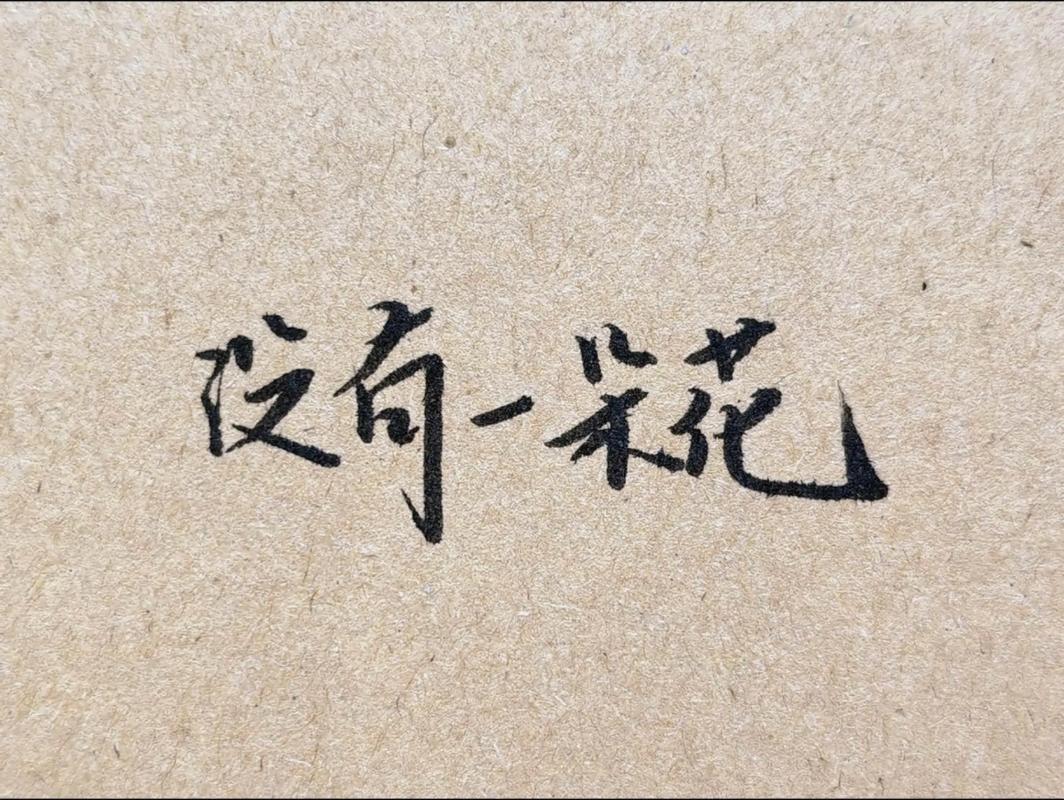 没有一朵花